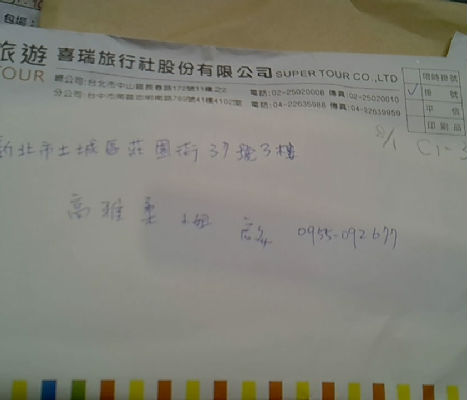 包場:
旅遊 喜瑞旅行社股份有限公司 SUPER TOUR CO.,LTD
TOUR 總公司:台北市中山區長春路172號11樓之2 電話:02-25020008 傳真:02-25020010
分公司:台中市南區忠明南路789號41樓4102室 電話:04-22635988 傳真:04-22639959
限時掛號
✓ 掛號
平信
印刷品
8/1 C1-3
新北市土城區莊園街37號3樓
高雅柔 小姐 0955-092677